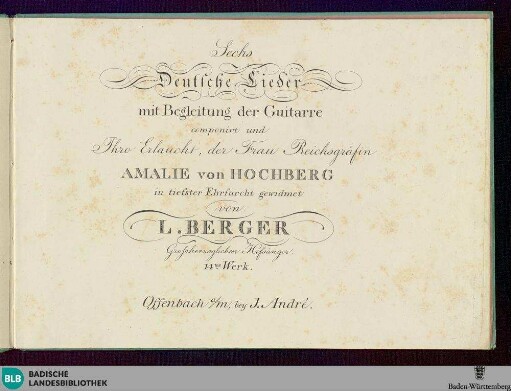 Sechs
Deutsche Lieder
mit Begleitung der Guitarre
componirt und
Ihro Erlaucht, der Frau Reichsgräfin
AMALIE von HOCHBERG
in tiefster Ehrforcht gewidmet
von
L. BERGER
Grosherzoglichem Hofsænger.
14tes Werk.
Offenbach a/m, bey J. André.
BLB
BADISCHE
LANDESBIBLIOTHEK
Baden-Württemberg